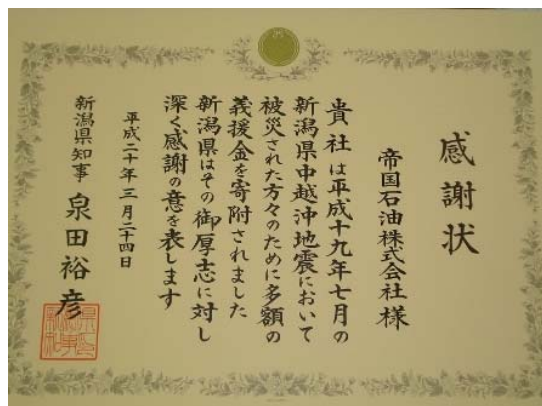 感謝状
帝国石油株式会社様
貴社は平成十九年七月の
新潟県中越沖地震において
被災された方々のために多額の
義援金を寄附されました
新潟県はその御厚志に対し
深く感謝の意を表します
平成二十年三月二十四日
新潟県知事 泉田裕彦